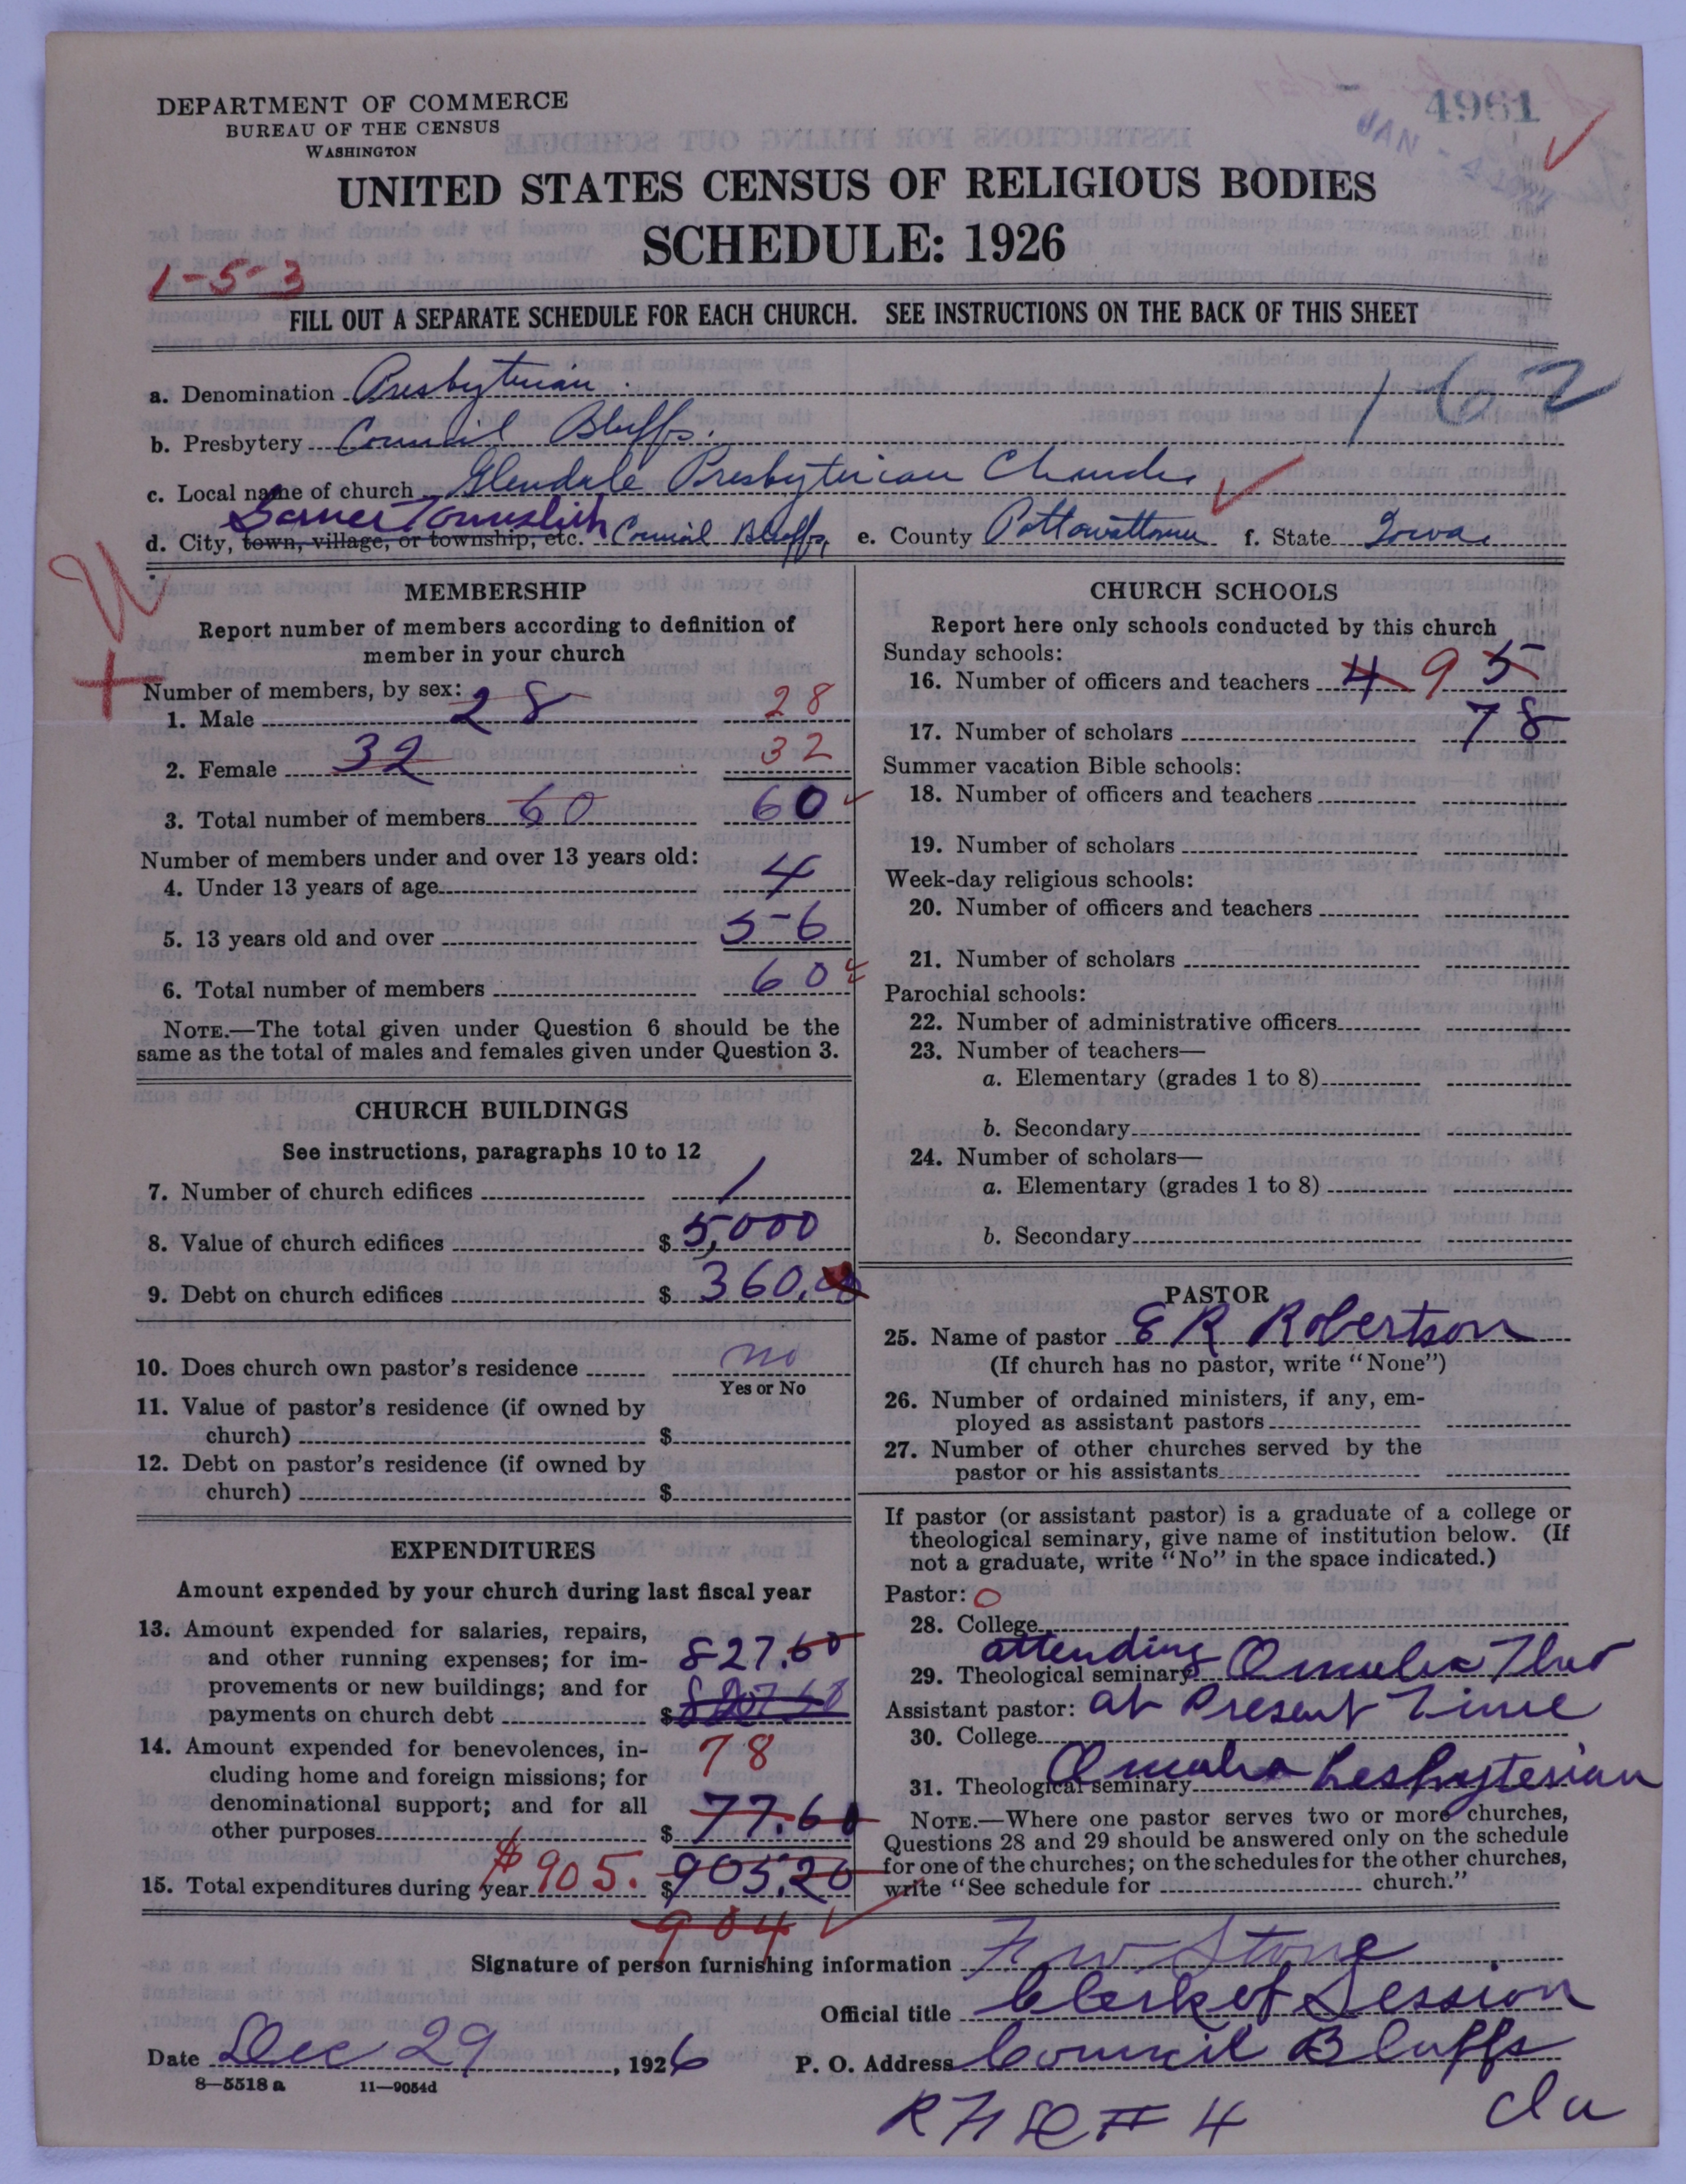 4961
JAN
DEPARTMENT OF COMMERCE
BUREAU OF THE CENSUS
WASHINGTON
UNITED STATES CENSUS OF RELIGIOUS BODIES
SCHEDULE: 1926
1-5-3
FILL OUT A SEPARATE SCHEDULE FOR EACH CHURCH. SEE INSTRUCTIONS ON THE BACK OF THIS SHEET
a. Denomination Presbyterian
162
b. Presbytery Council Bluffs.
c. Local name of church Glendale Presbyterian Church
Garner Township
d. City, town, village, or township, etc. Council Bluffs, e. County Pottawattomie f. State Iowa
MEMBERSHIP
Report number of members according to definition of
member in your church
Number of members, by sex:
1. Male 28 28
2. Female 32 32
3. Total number of members 60 60
Number of members under and over 13 years old:
4. Under 13 years of age 4
5. 13 years old and over 56
6. Total number of members 60
NOTE.—The total given under Question 6 should be the
same as the total of males and females given under Question 3.
CHURCH BUILDINGS
See instructions, paragraphs 10 to 12
7. Number of church edifices 1
8. Value of church edifices $ 5,000
9. Debt on church edifices $ 360.00
10. Does church own pastor's residence no
Yes or No
11. Value of pastor's residence (if owned by
church) $
12. Debt on pastor's residence (if owned by
church) $
EXPENDITURES
Amount expended by your church during last fiscal year
13. Amount expended for salaries, repairs,
and other running expenses; for im- 827.60
provements or new buildings; and for
payments on church debt $
14. Amount expended for benevolences, in- 78
cluding home and foreign missions; for
denominational support; and for all
other purposes $ 77.60
15. Total expenditures during year $905. $ 905.20
904
CHURCH SCHOOLS
Report here only schools conducted by this church
Sunday schools:
16. Number of officers and teachers 4 9 5
17. Number of scholars 78
Summer vacation Bible schools:
18. Number of officers and teachers
19. Number of scholars
Week-day religious schools:
20. Number of officers and teachers
21. Number of scholars
Parochial schools:
22. Number of administrative officers
23. Number of teachers—
a. Elementary (grades 1 to 8)
b. Secondary
24. Number of scholars—
a. Elementary (grades 1 to 8)
b. Secondary
PASTOR
25. Name of pastor E R Robertson
(If church has no pastor, write "None")
26. Number of ordained ministers, if any, em-
ployed as assistant pastors
27. Number of other churches served by the
pastor or his assistants
If pastor (or assistant pastor) is a graduate of a college or
theological seminary, give name of institution below. (If
not a graduate, write "No" in the space indicated.)
Pastor: O
28. College
attending
29. Theological seminary Omaha Theo
Assistant pastor: at Present Time
30. College
31. Theological seminary Omaha Presbyterian
NOTE.—Where one pastor serves two or more churches,
Questions 28 and 29 should be answered only on the schedule
for one of the churches; on the schedules for the other churches,
write "See schedule for church."
Signature of person furnishing information F W Stone
Official title Clerk of Session
Date Dec 29, 1926 P. O. Address Council Bluffs
8—5518 a 11—9054d
R F D # 4 Ia